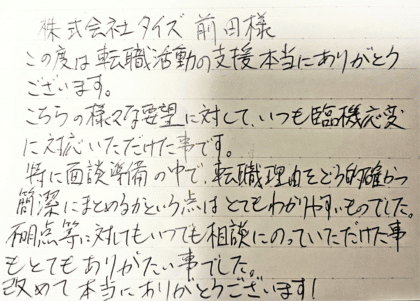 株式会社タイズ 前田様
この度は転職活動の支援本当にありがとう
ございます。
こちらの様々な要望に対して、いつも臨機応変
に対応いただけた事です。
特に面談準備の中で、転職理由をどう的確かつ
簡潔にまとめるかという点はとてもわかりやすいものでした。
不明点等に対してもいつでも相談にのっていただけた事
もとてもありがたい事でした。
改めて本当にありがとうございます!